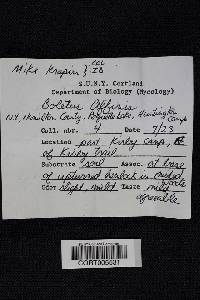 Mike Krapin } COL
ID
S.U.N.Y. Cortland
Department of Biology (Mycology)
Boletus Affinis
N.Y. Hamilton County, Raquette Lake, Huntington Camp
Coll. nbr. 4 Date 7/23
Location past Kirby Camp,
of Kirby Trail
Substrate soil Assoc. at base
of upturned hemlock in
roots
Odor slight, Taste mild
agreeable
CORT005631